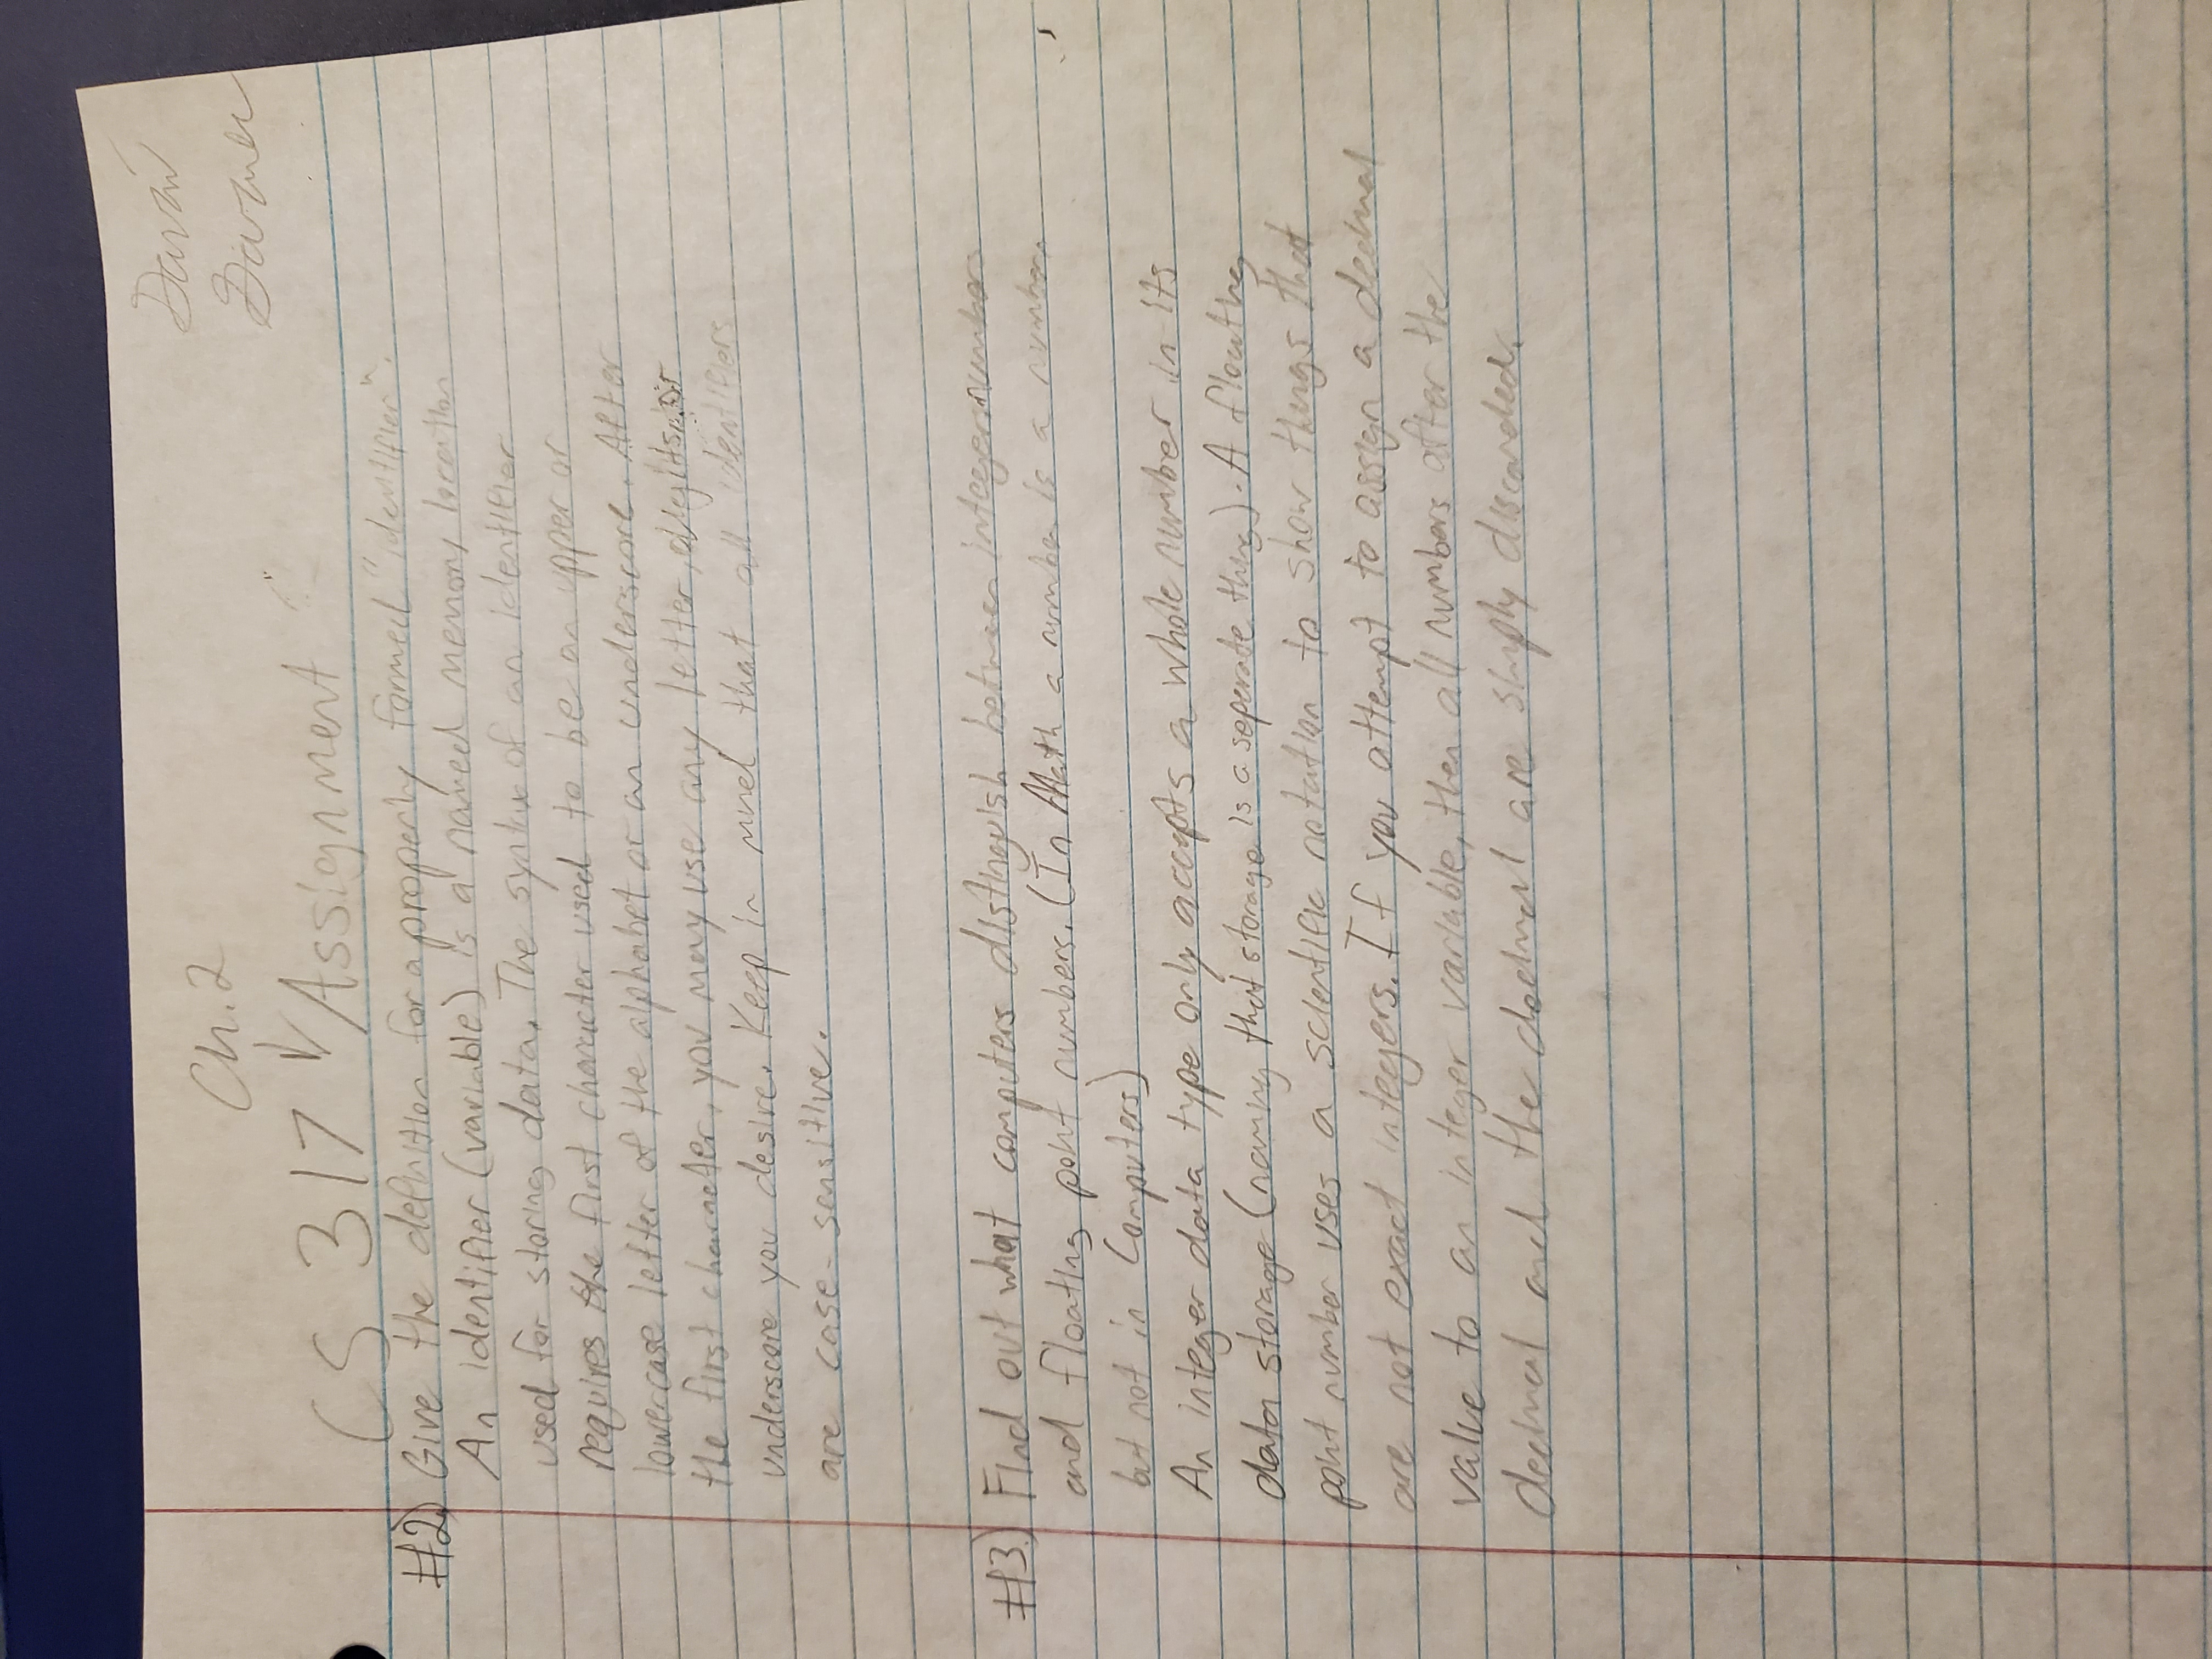 Ch.2
CS 317 Assignment
#2) Give the definition for a properly formed "identifier".
An identifier (variable) is a named memory location
used for storing data. The syntax of an identifier
requires the first character used to be an upper or
lowercase letter of the alphabet or an underscore. After
the first character, you may use any letter, digits, or
underscore you desire. Keep in mind that all identifiers
are case-sensitive.
#3.) Find out what computers distinguish between integer numbers
and floating point numbers. (In Math a number is a number,
but not in Computers)
An integer data type only accepts a whole number in its
data storage (naming that storage is a seperate thing). A floating
point number uses a scientific notation to show things that
are not exact integers. If you attempt to assign a decimal
value to an integer variable, then all numbers after the
decimal and the decimal are simply discarded.